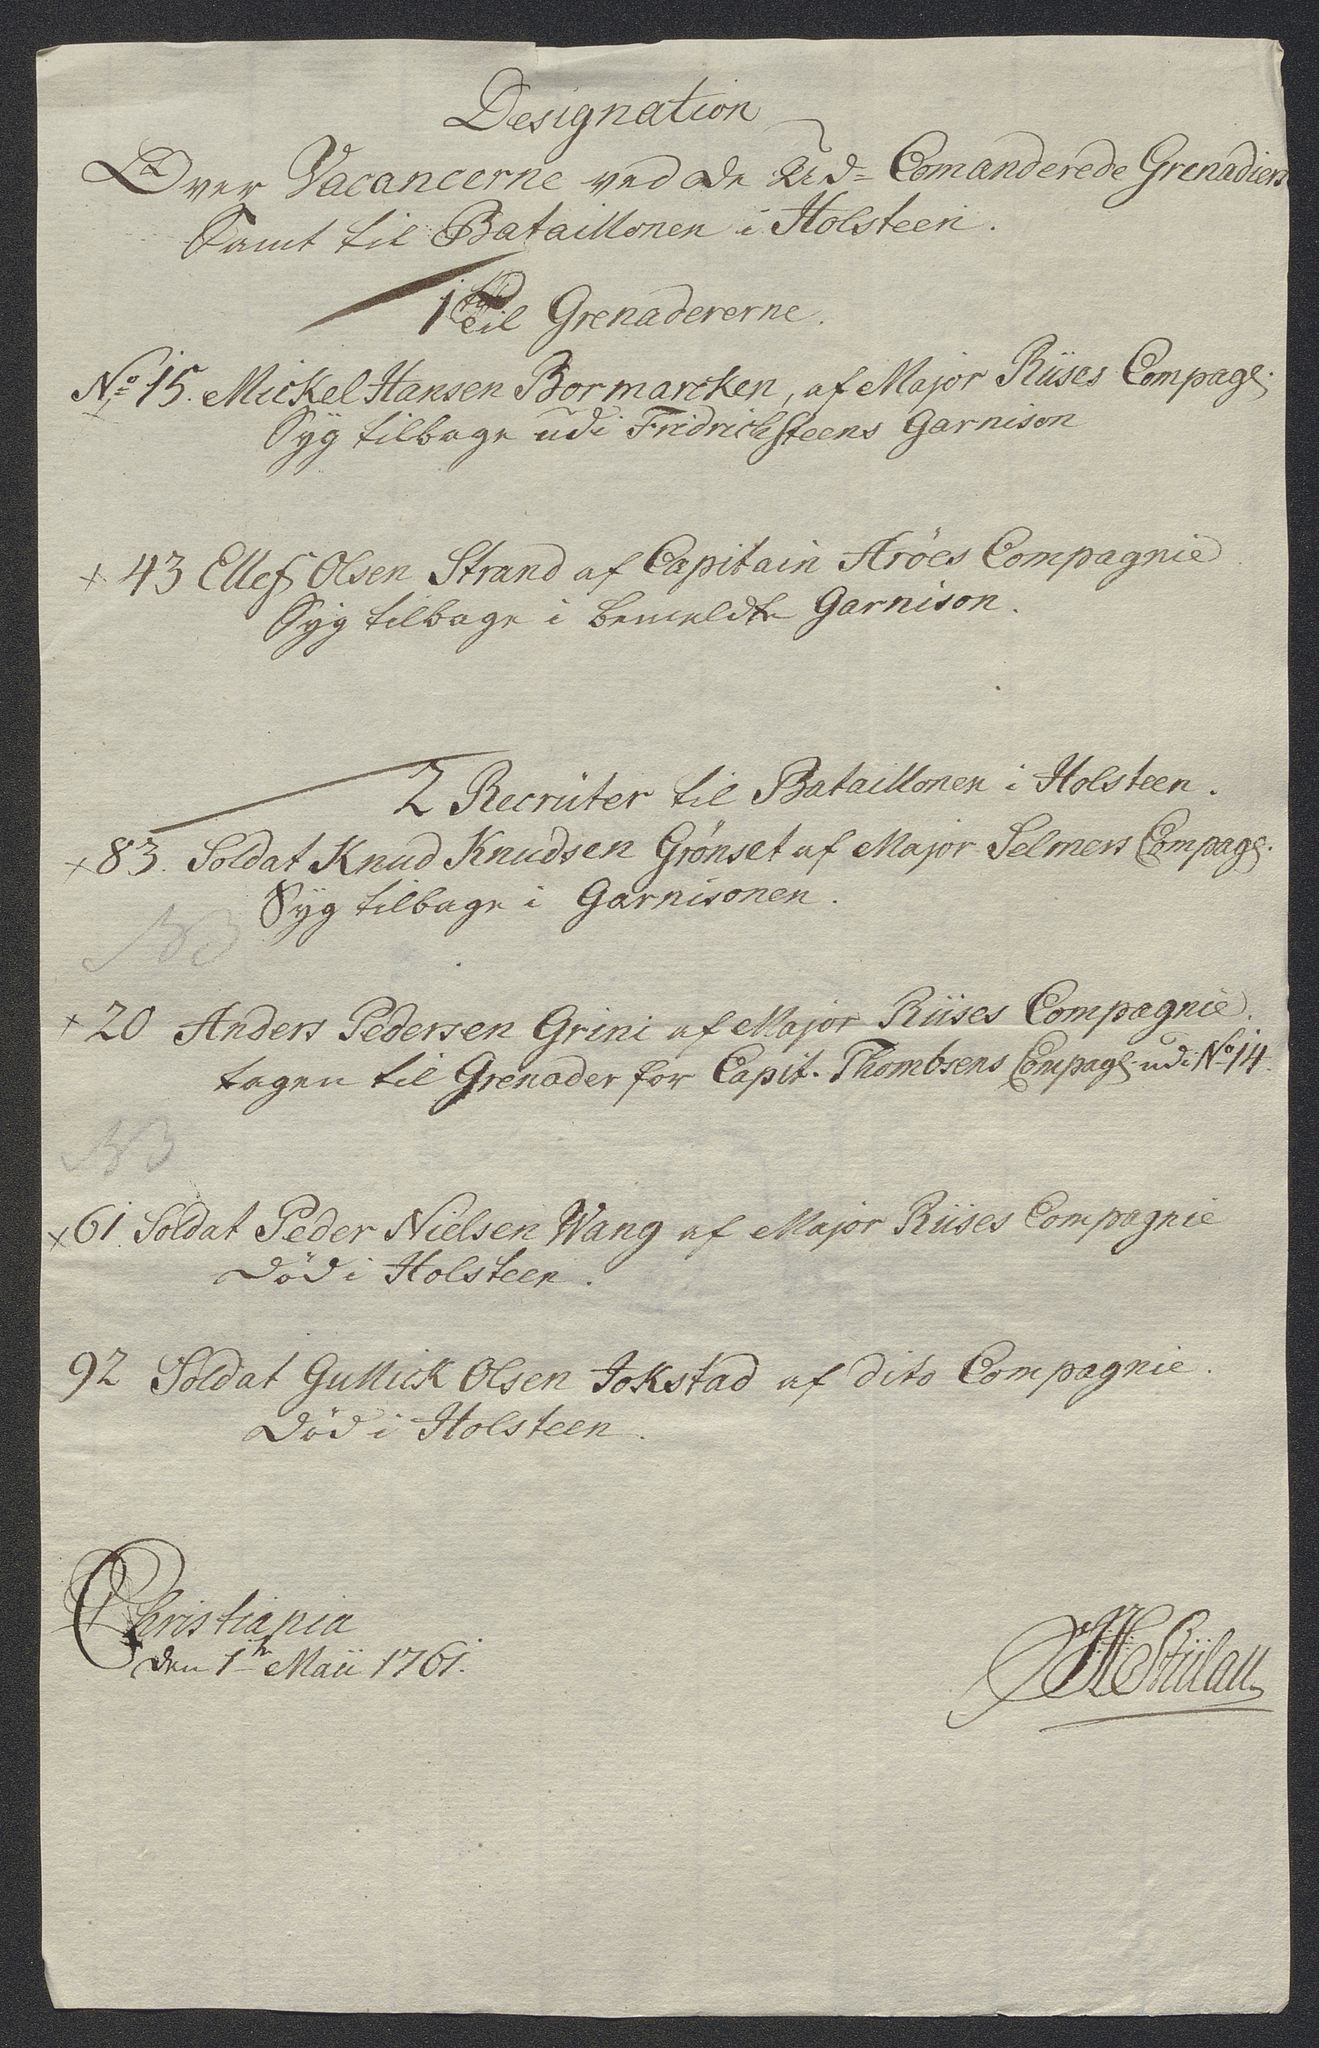 Designation
Over Vacancerne ved de Ud= Comanderede Grenadiers
Samt til Bataillonen i Holsteen.
1 til Grenadererne.
No 15. Mickel Hansen Bormarcken, af Major Riises Compag:
Syg tilbage udi Fridrichsteens Garnison
x 43 Ellef Olsen Strand af Capitain Arøes Compagnie
Syg tilbage i bemeldte Garnison.
2 Recrüter til Bataillonen i Holsteen.
x 83. Soldat Knud Knudsen Grønset af Major Selmers Compag:
Syg tilbage i Garnisonen.
NB
x 20 Anders Pedersen Grini af Major Riises Compagnie.
tagen til Grenader for Capit. Thombsens Compag: udi No 14.
NB
x 61. Soldat Peder Nielsen Wang af Major Riises Compagnie
død i Holsteen.
92 Soldat Gullick Olsen Jokstad af dito Compagnie.
Død i Holsteen.
Christiania
den 1te Maii 1761.
Stülau